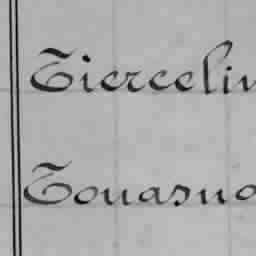 Tiercelin
Touasno